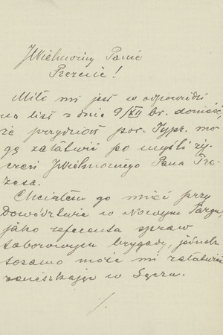 JWielmożny Panie
Prezesie!
Miło mi jest w odpowiedzi
na list z dnia 9/XII br. donieść,
że przydział por. Typr. mo-
gę załatwić po myśli ży-
czeń JWielmożnego Pana Pre-
zesa.
Chciałem go mieć przy
Dowództwie w Nowym Targu,
jako referenta spraw
taborowych brygady, jednak
tosamo może mi załatwić
zamieszkując w Sączu.
./.